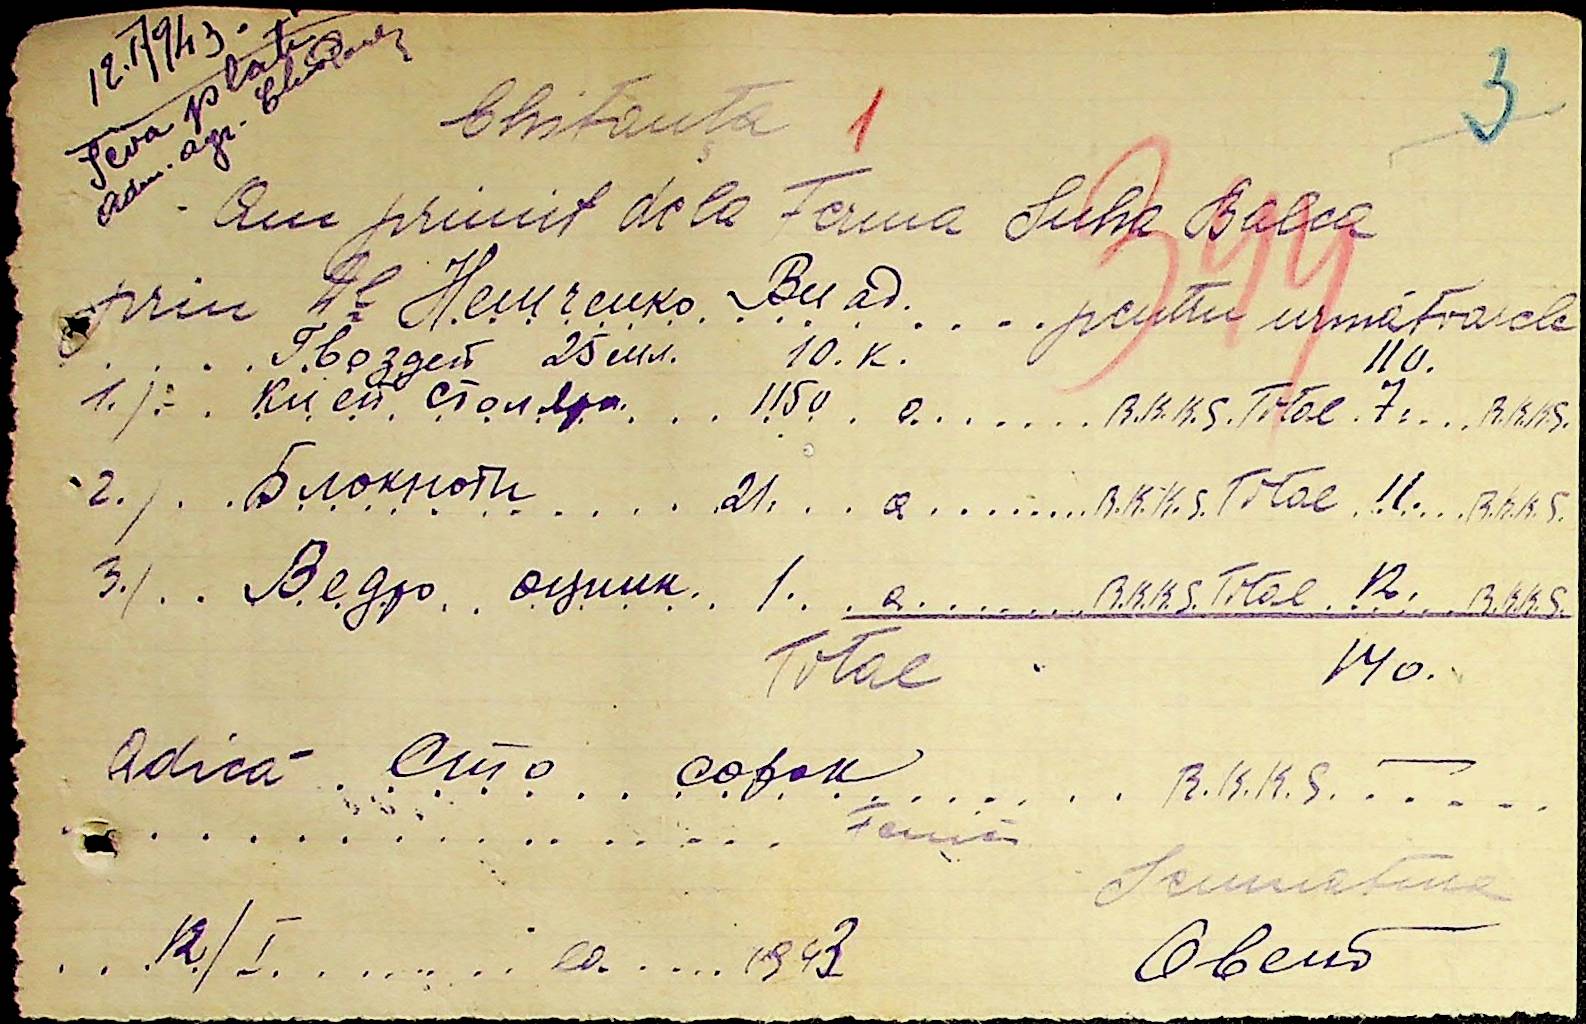 12.I.943.
Se va plati
Adm. agr.
3
Chitanța 1
Am primit dela Ferma Suha Balca
399
prin Dl Немченко Влад. pentru următoarele
Гвоздей 25 мл. 10. к. 110.
1./ Клей столяр. 1150 a R.K.K.S. Total 7. R.K.K.S.
2./ Блокноти 21. a R.K.K.S. Total 11. R.K.K.S.
3./ Ведро оцинк. 1. a R.K.K.S. Total 12. R.K.K.S.
Total 140.
Adică Сто сорок R.K.K.S.
Semnatura
12/I 1943